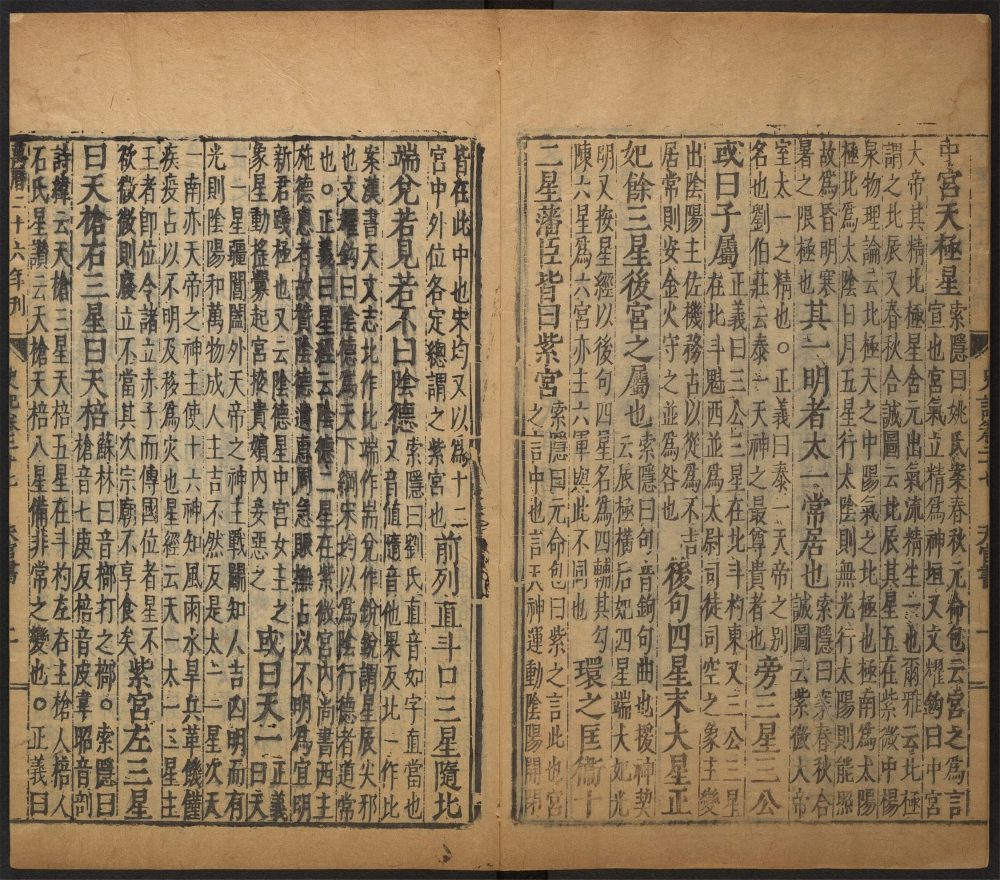 史記卷二十七 天官書 一
中宮天極星
索隱曰姚氏案春秋元命包云宮之為言
宣也宮氣立精為神垣又文耀鉤曰中宮
大帝其精北極星含元出氣流精生一也爾雅云北極
謂之北辰又春秋合誠圖云北辰其星五在紫微中楊
泉物理論云北極天之中陽氣之北極也極南為太陽
極北為太陰日月五星行太陰則無光行太陽則能照
故為昏明寒
暑之限極也
其一明者太一常居也
索隱曰案春秋合
誠圖云紫微大帝
室太一之精也○正義曰泰一天帝之別
名也劉伯莊云泰一天神之最尊貴者也
旁三星三公
或曰子屬
正義曰三公三星在北斗杓東又三公三星
在北斗魁西並為太尉司徒司空之象主變
出陰陽主佐機務占以從為不吉
居常則安金火守之並為咎也
後句四星末大星正
妃餘三星後宮之屬也
索隱曰句音鉤句曲也援神契
云辰極橫后妃四星端大妃光
明又按星經以後句四星名為四輔其勾
陳六星為六宮亦主六軍與此不同也
環之匡衛十
二星藩臣皆曰紫宮
索隱曰元命包曰紫之言此也宮
之言中也言天神運動陰陽開閉
皆在此中也宋均又以為十二
宮中外位各定總謂之紫宮也
前列直斗口三星隨北
端兌若見若不曰陰德
索隱曰劉氏直音如字直當也
又音值隨音他果反北一作比
案漢書天文志北作比端作耑兌作銳銳謂星辰尖邪
也文耀鉤曰陰德為天下綱宋均以為陰行德者道常
也○正義曰星經云陰德二星在紫微宮內尚書西主
施德惠者故贊陰德遺惠周急賑撫占以不明為宜明
新君踐極也又云陰德星中宮女主之
象星動搖釁起宮掖貴嬪內妾惡之
或曰天一
正義
曰天
一一星疆閶闔外天帝之神主戰鬭知人吉凶明而有
光則陰陽和萬物成人主吉不然反是太一一星次天
一南亦天帝之神主使十六神知風雨水旱兵革饑饉
疾疫占以不明及移為灾也星經云天一太一二星主
王者即位令諸立赤子而傳國位者星不
欲微微則廢立不當其次宗廟不享食矣
紫宮左三星
曰天槍右三星曰天棓
蘇林曰音榔打之榔○索隱曰
槍音七庚反棓音皮韋昭音剖
詩緯云天槍三星天棓五星在斗杓左右主槍人棓人
石氏星讚云天槍天棓八星備非常之變也○正義曰
萬曆二十六年刊
史記卷二十七
天官書
一